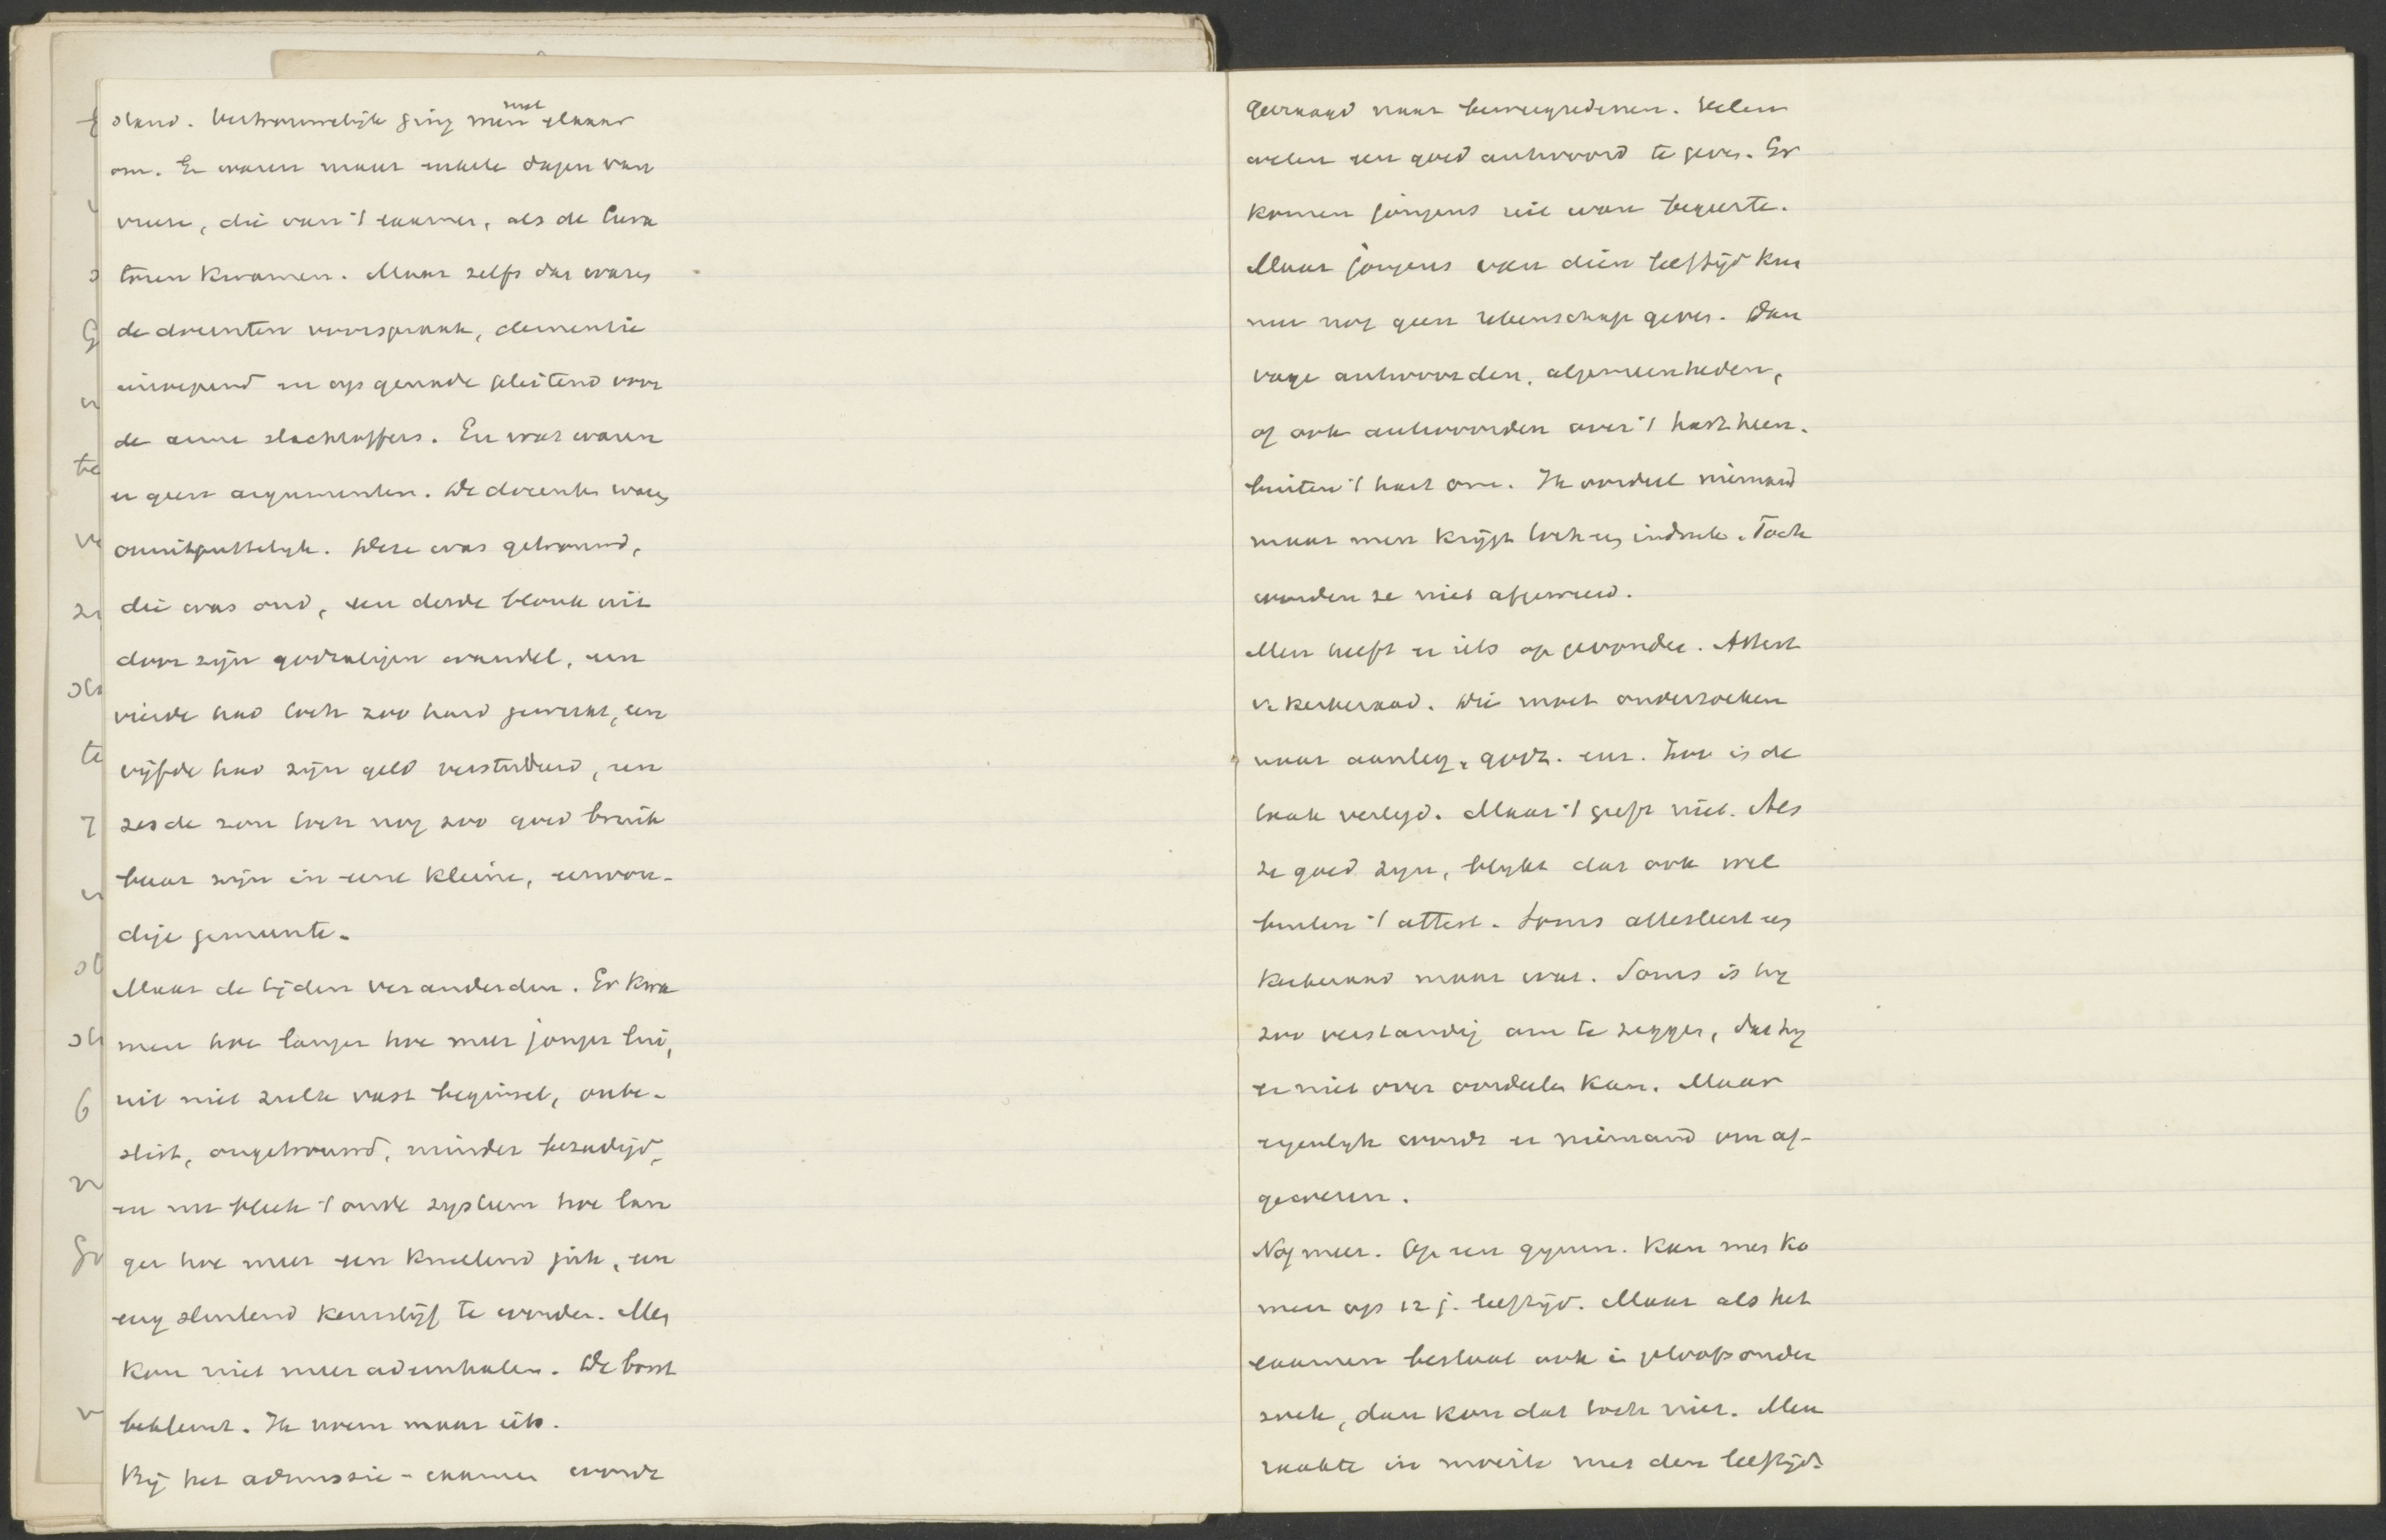 stand. Vertrouwelijk ging men met elkaar
om. Er waren maar enkele dagen van
vreze, die van 't examen, als de Cura
toren kwamen. Maar zelfs dan waren
de docenten voorspraak, clementie
inroepend en op genade pleitend voor
de arme slachtoffers. En wat waren
er geen argumenten. De docenten waren
onuitputtelijk. Deze was getrouwd,
die was oud, een derde blonk uit
door zijn godzaligen wandel, een
vierde had toch zoo hard gewerkt, een
vijfde had zijn geld verstudeerd, een
zesde zou toch nog zoo goed bruik
baar zijn in eene kleine, eenvou-
dige gemeente.
Maar de tijden veranderden. Er kwa
men hoe langer hoe meer jonger lui,
uit niet zulk vast beginsel, onbe-
slist, ongetrouwd, minder bezadigd,
en nu bleek 't oude systeem hoe lan
ger hoe meer een knellend juk, een
eng sluitend keurslijf te worden. Men
kon niet meer ademhalen. De borst
beklemt. Ik noem maar iets.
Bij het admissie-examen wordt
gevraagd naar beweegredenen. Velen
weten een goed antwoord te geven. Er
komen jongens uit ware begeerte.
Maar jongens van dien leeftijd kun
nen nog geen rekenschap geven. Dan
vage antwoorden, algemeenheden,
of ook antwoorden over 't hart heen.
buiten 't hart om. Ik oordeel niemand
maar men krijgt toch een indruk. Toch
worden ze niet afgewezen.
Men heeft er iets op gevonden. Attest
v. kerkeraad. Die moet onderzoeken
naar aanleg, godz. enz. Zoo is de
taak verlegd. Maar 't geeft niet. Als
ze goed zijn, blijkt dat ook wel
buiten 't attest. Soms attesteert een
kerkeraad maar wat. Soms is hij
zoo verstandig om te zeggen, dat hij
er niet over oordeelen kan. Maar
eigenlijk wordt er niemand om af-
gewezen.
Nog meer. Op een gymn. kan men ko
men op 12 j. leeftijd. Maar als het
examen bestaat ook in geloofsonder
zoek, dan kan dat toch niet. Men
raakte in moeite met den leeftijd.